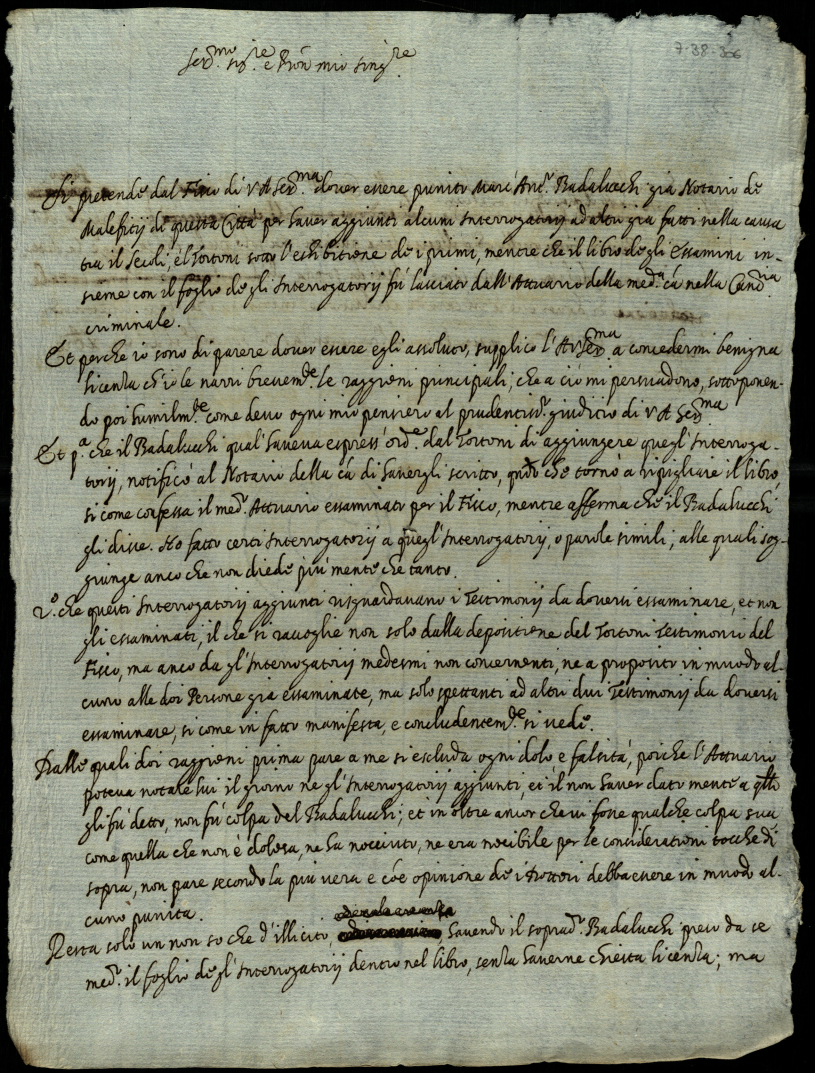 7-38-306
Ser.mo sig.re e Pron mio sing.re
Si pretende dal Fisco di V A Ser.ma dover essere punito Marc'Ant.o Badalucchi già Notario de
Malefitij di questa Città per haver aggiunti alcuni Interrogatorij ad altri già fatti nella causa
tra il Secoli, e'l Tortoni sotto l'eshibitione de i primi, mentre che il libro degli essamini in-
sieme con il foglio degli Interrogatorij fù lasciato dall'Attuario della med.a cà nella Canc.ria
criminale.
Et perche io sono di parere dover essere egli assoluto, supplico l'A V Ser.ma a concedermi benigna
licenza ch'io le narri brevem.te le raggioni principali, che a ciò mi persuadono, sottoponen-
do poi humilm.te come devo ogni mio pensiero al prudentiss.o giudicio di V A Ser.ma
Et p.a che il Badalucchi qual'haveva espress'ord.e dal Tortoni di aggiungere quegl'Interroga-
torij, notificò al Notario della cà di havergli scritto, qndo che tornò a ripigliare il libro,
si come confessa il med.o Attuario essaminato per il Fisco, mentre afferma che il Badalucchi
gli disse. Ho fatto certi Interrogatorij a quegl'Interrogatorij, o parole simili; alle quali sog-
giunge anco che non diede più mente che tanto.
2.o che questi Interrogatorij aggiunti risguardavano i Testimonij da doversi essaminare, et non
gli essaminati, il che si raccoglie non solo dalla depositione del Tortoni Testimonio del
Fisco, ma anco da gl'Interrogatorij medesmi non concernenti, ne a proposito in muodo al-
cuno alle doi Persone già essaminate, ma solo spettanti ad altri dui Testimonij da doversi
essaminare, si come in fatto manifesta, e concludentem.te si vede.
Dalle quali doi raggioni prima pare a me si escluda ogni dolo, e falsità, poiche l'Attuario
poteva notare lui il giorno ne gl'Interrogatorij aggiunti, et il non haver dato mente a qllo
gli fù detto, non fù colpa del Badalucchi; et in oltre ancor che vi fosse qualche colpa sua
come quella che non è dolosa, ne ha nociuto, ne era nocibile per le considerationi tocche di
sopra, non pare secondo la più vera e cõe opinione de i Dottori debba essere in muodo al-
cuno punita.
Resta solo un non so che d'illicito, havendo il soprad.o Badalucchi preso da se
med.o il foglio degl'Interrogatorij dentro nel libro, senza haverne chiesta licenza; ma